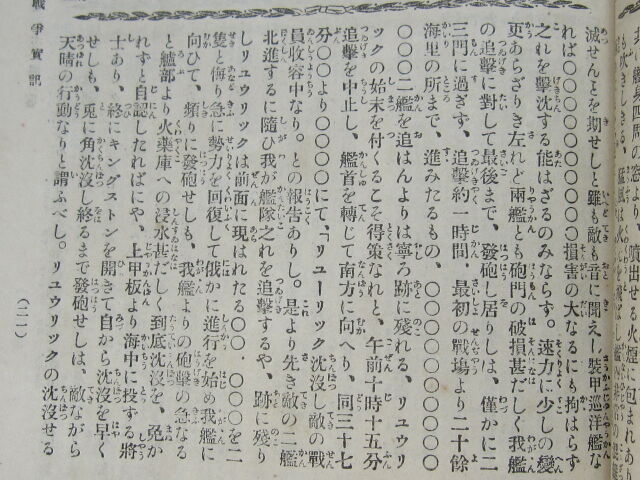 滅せんとを期せしと雖も敵も音に聞えし裝甲巡洋艦な
れば〇〇〇〇〇〇〇〇損害の大なるにも拘はらず
之れを擊沈する能はざるのみならず。速力に少しの變
更あらざりき左れど兩艦とも砲門の破損甚だしく我艦
の追擊に對して最後まで、發砲し居りしは、僅かに二
三門に過ぎず、追擊約一時間、最初の戰場より二十餘
海里の所まで、進みたるもの、〇〇〇〇〇〇〇〇〇
〇〇〇二艦を追はんよりは寧ろ跡に殘れる、リユウリ
ツクの始末を付くるこそ得策なれと、午前十時十五分
追擊を中止し、艦首を轉じて南方に向へり、同三十七
分〇〇より〇〇〇〇にて、「リユーリツク沈沒し敵の戰
員收容中なり。との報告ありし。是より先き敵の二艦
北進するに隨ひ我が艦隊之れを追擊するや、跡に殘り
しリユウリツクは前面に現はれたる〇〇 〇〇 を二
隻と侮り急に勢力を回復して俄かに進行を始め我艦に
向ひて、頻りに發砲せしも、我艦よりの砲擊の急なる
と艫部より火藥庫への浸水甚だしく到底沈沒を、免か
れずと自認したればにや、上甲板より海中に投する將
士あり、終にキングストンを開きて自から沈沒を早く
せしも、兎に角沈沒し終るまで發砲せしは、敵ながら
天晴の行動なりと謂ふべし。リユウリツクの沈沒せる
戰爭實記
(二一)